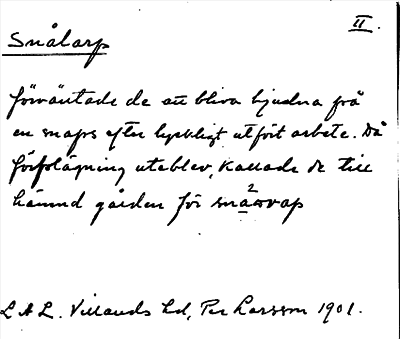 II.
Snålarp
förväntade de att bliva bjudna på
en snaps efter lyckligt utfört arbete. Då
förplägning uteblev, kallade de till
hämnd gården för
L A L. Villands hd, Per Larsson 1901.